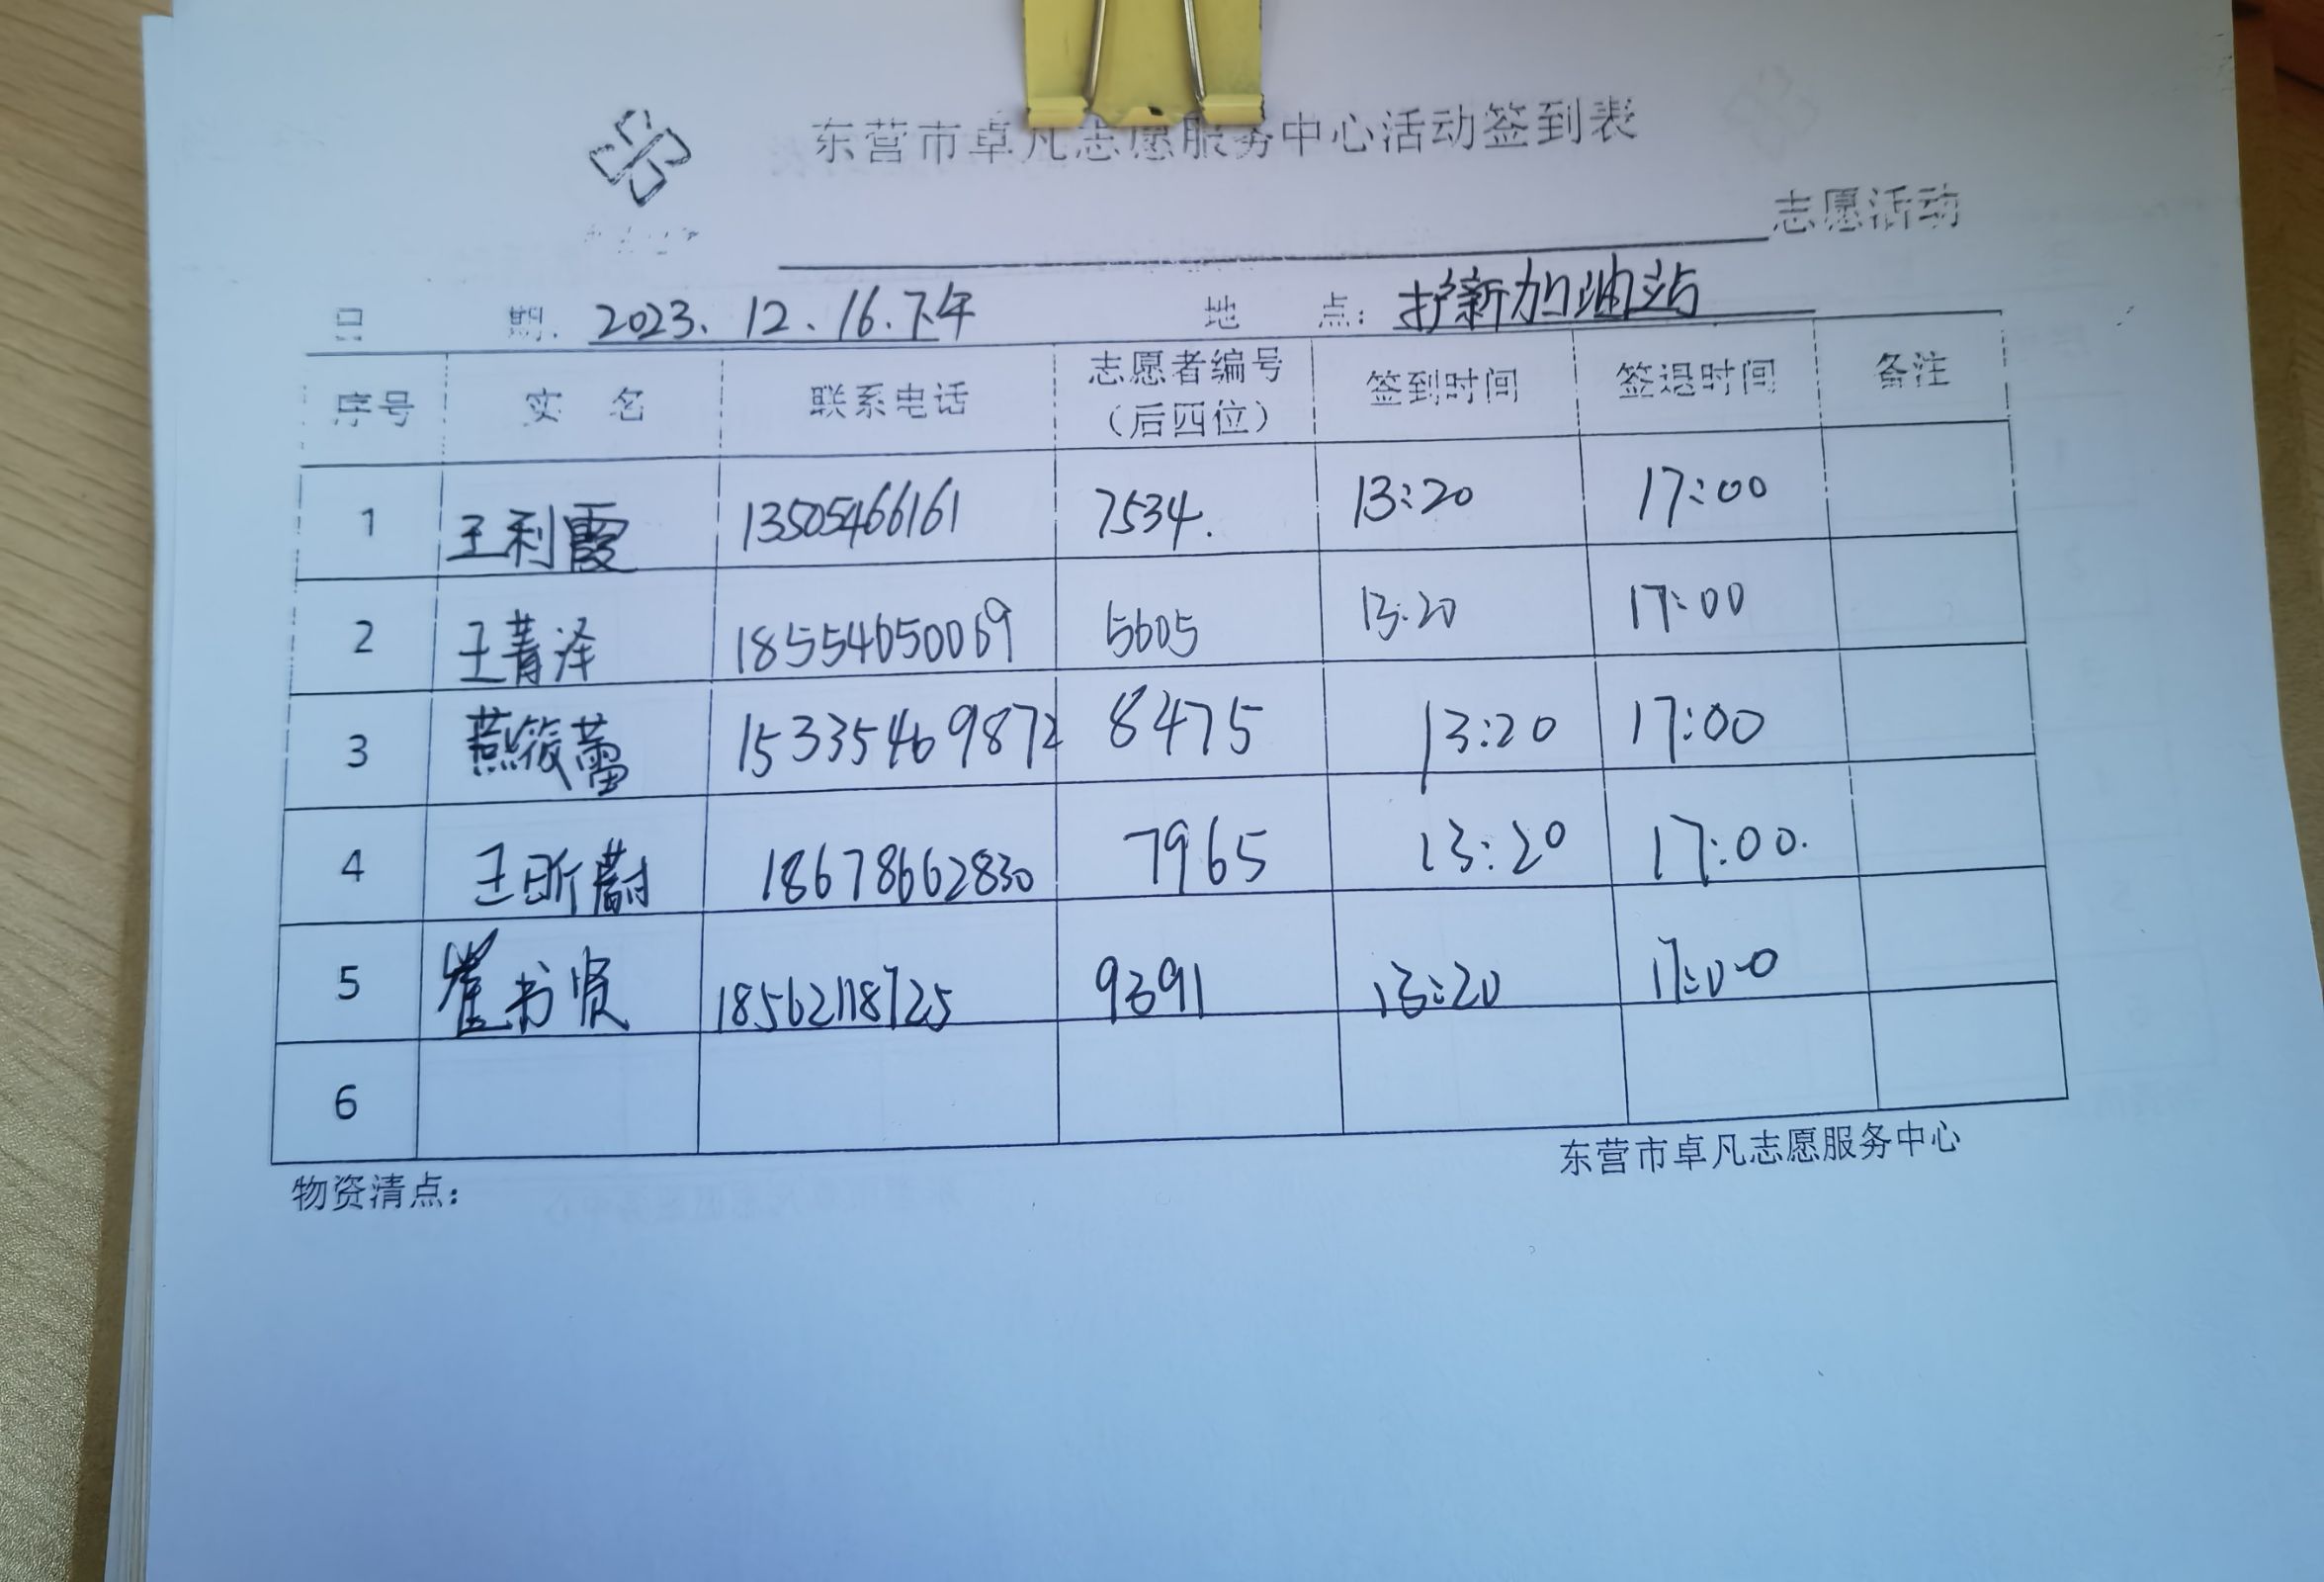 东营市卓凡志愿服务中心活动签到表
志愿活动
日 期: 2023.12.16.下午 地 点: 护新加油站
序号 实 名 联系电话 志愿者编号（后四位） 签到时间 签退时间 备注
1 王利霞 13505466161 7534. 13:20 17:00
2 王菁泽 18554650069 5605 13:20 17:00
3 燕筱蕾 15335469872 8475 13:20 17:00
4 王昕蔚 18678662830 7965 13:20 17:00.
5 崔书贤 18562118725 9391 13:20 17:00
6
东营市卓凡志愿服务中心
物资清点：